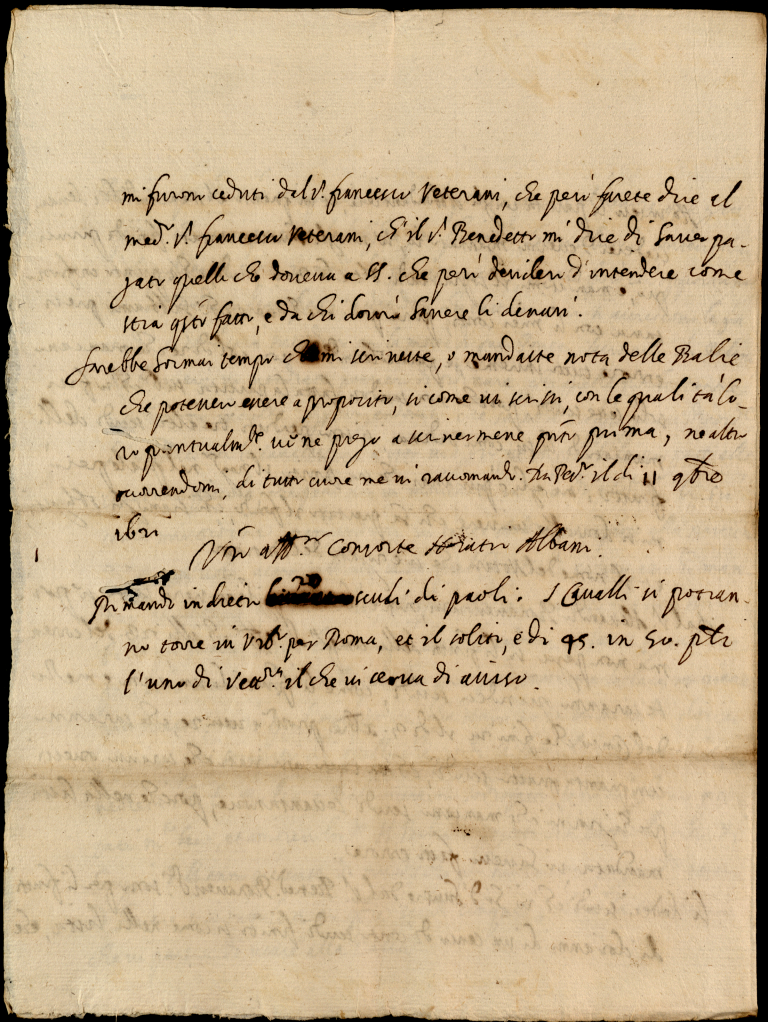 mi furono ceduti dal s.r francesco Veterani, che però farete dire al
med.o s.r francesco Veterani, ch'il s.r Benedetto mi dice di haver pa-
gato quelli che doveva a SS. che però desidero d'intendere come
stia q.sto fatto, e da chi dovrò havere li denari.
sarebbe hormai tempo che mi scriveste, o mandaste nota delle Balie
che potevan essere a proposito, si come vi scrissi, con le qualità lo-
ro puntualm.te ve ne prego a scrivermene q.to prima, ne altro
occorrendomi, di tutto cuore me vi raccomando. Da il di 11 9bre
Vro aff.mo Consorte Horatio Albani.
Rimando indietro scudi di paoli. I Cavalli si potran-
no torre in Urb.o per Roma, et il solito, è di 45. in 50. pli
l'uno di vett.ra il che vi serva di aviso.